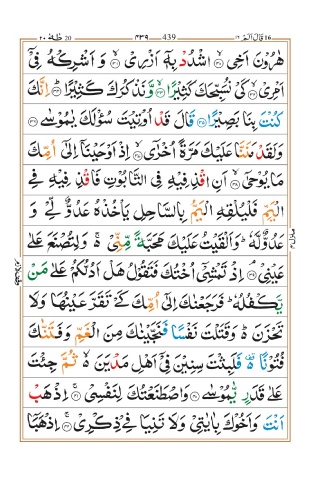 طٰهٰ ٢٠ ٤٣٩ 439 قَالَ اَلَمْ ١٦
هٰرُوْنَ اَخِی ۙ﴿۳۰﴾ اشْدُدْ بِهٖۤ اَزْرِیْ ۙ﴿۳۱﴾ وَ اَشْرِكْهُ فِیْۤ
اَمْرِیْ ۙ﴿۳۲﴾ كَیْ نُسَبِّحَكَ كَثِیْرًا ۙ﴿۳۳﴾ وَّ نَذْكُرَكَ كَثِیْرًا ؕ﴿۳۴﴾ اِنَّكَ
كُنْتَ بِنَا بَصِیْرًا ﴿۳۵﴾ قَالَ قَدْ اُوْتِیْتَ سُؤْلَكَ یٰمُوْسٰی ﴿۳۶﴾
وَلَقَدْ مَنَنَّا عَلَیْكَ مَرَّةً اُخْرٰۤی ۙ﴿۳۷﴾ اِذْ اَوْحَیْنَاۤ اِلٰۤی اُمِّكَ
مَا یُوْحٰۤی ۙ﴿۳۸﴾ اَنِ اقْذِفِیْهِ فِی التَّابُوْتِ فَاقْذِفِیْهِ فِی
الْیَمِّ فَلْیُلْقِهِ الْیَمُّ بِالسَّاحِلِ یَاْخُذْهُ عَدُوٌّ لِّیْ وَ
عَدُوٌّ لَّهٗ ؕ وَ اَلْقَیْتُ عَلَیْكَ مَحَبَّةً مِّنِّیْ ۬ۚ وَ لِتُصْنَعَ عَلٰی
عَیْنِیْ ۘ﴿۳۹﴾ اِذْ تَمْشِیْۤ اُخْتُكَ فَتَقُوْلُ هَلْ اَدُلُّكُمْ عَلٰی مَنْ
یَّكْفُلُهٗ ؕ فَرَجَعْنٰكَ اِلٰۤی اُمِّكَ كَیْ تَقَرَّ عَیْنُهَا وَلَا
تَحْزَنَ ۬ؕ وَ قَتَلْتَ نَفْسًا فَنَجَّیْنٰكَ مِنَ الْغَمِّ وَ فَتَنّٰكَ
فُتُوْنًا ۬۟ فَلَبِثْتَ سِنِیْنَ فِیْۤ اَهْلِ مَدْیَنَ ۬ۙ ثُمَّ جِئْتَ
عَلٰی قَدَرٍ یّٰمُوْسٰی ﴿۴۰﴾ وَ اصْطَنَعْتُكَ لِنَفْسِیْ ۚ﴿۴۱﴾ اِذْهَبْ
اَنْتَ وَ اَخُوْكَ بِاٰیٰتِیْ وَلَا تَنِیَا فِیْ ذِكْرِیْ ۚ﴿۴۲﴾ اِذْهَبَاۤ